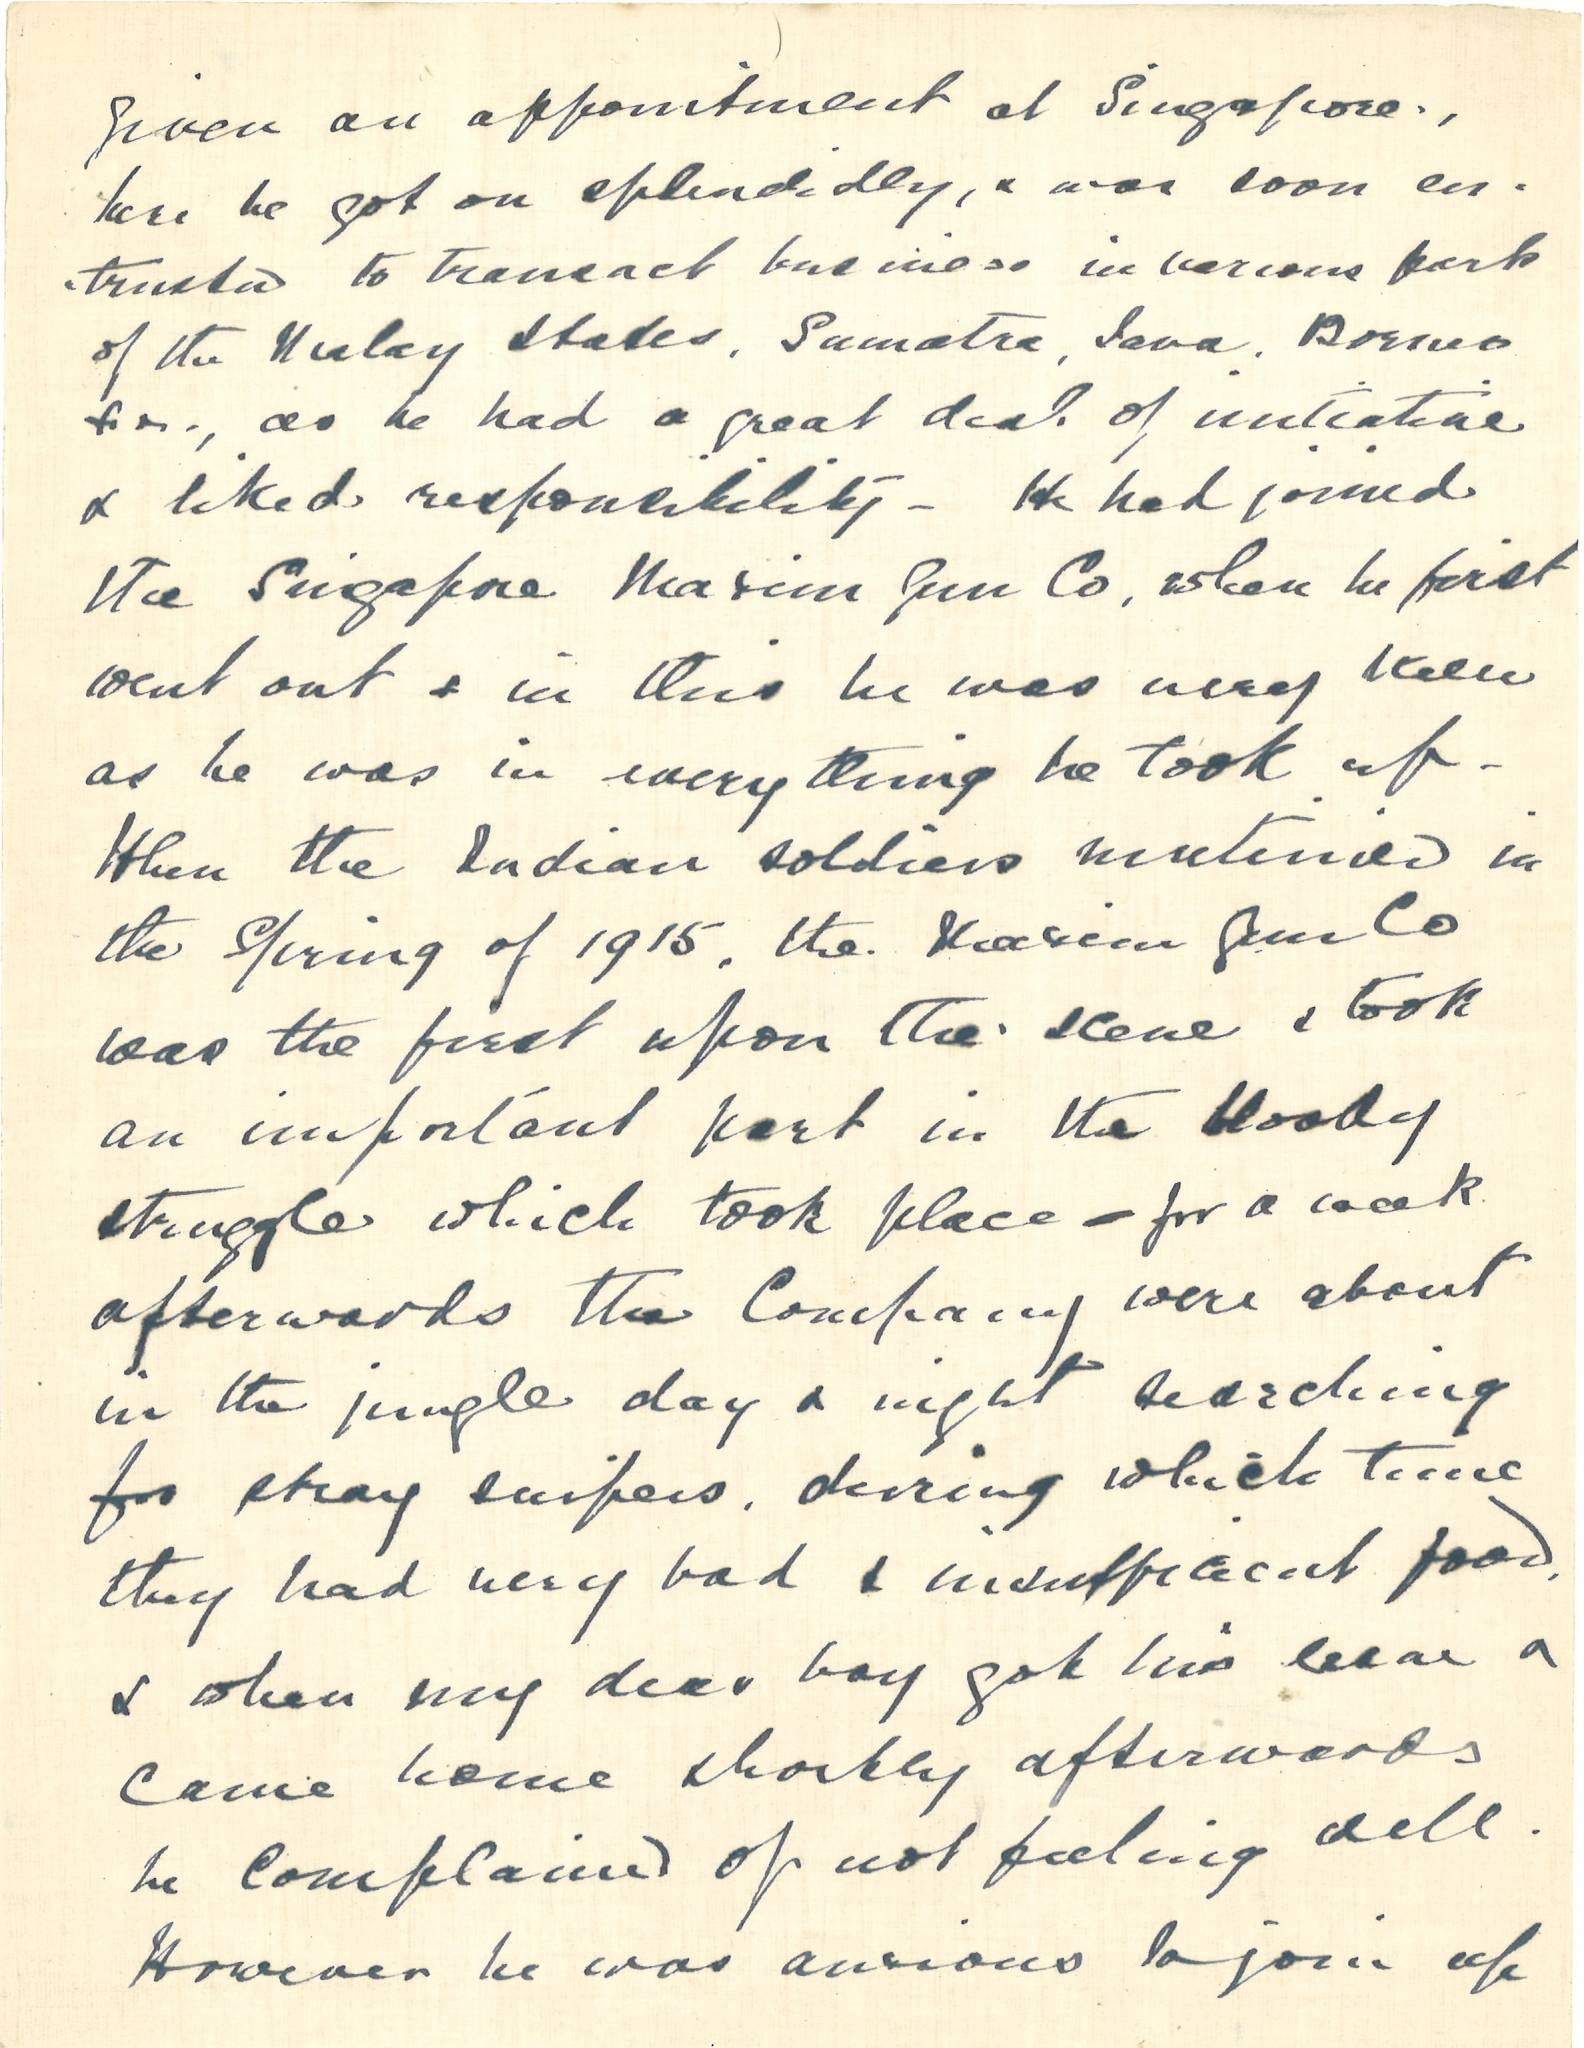 given an appointment at Singapore.,
here he got on splendidly, & was soon en-
-trusted to transact business in various parts
of the Malay States, Sumatra, Java, Borneo
&c., as he had a great deal of initiative
& liked responsibility - He had joined
the Singapore Maxim Gun Co, when he first
went out & in this he was very keen
as he was in everything he took up -
When the Indian soldiers mutinied in
the Spring of 1915, the Maxim Gun Co
was the first upon the scene & took
an important part in the bloody
struggle which took place - for a week
afterwards the Company were about
in the jungle day & night searching
for stray snipers, during which time
they had very bad & insufficient food,
& when my dear boy got his leave &
came home shortly afterwards
he complained of not feeling well.
However he was anxious to join up